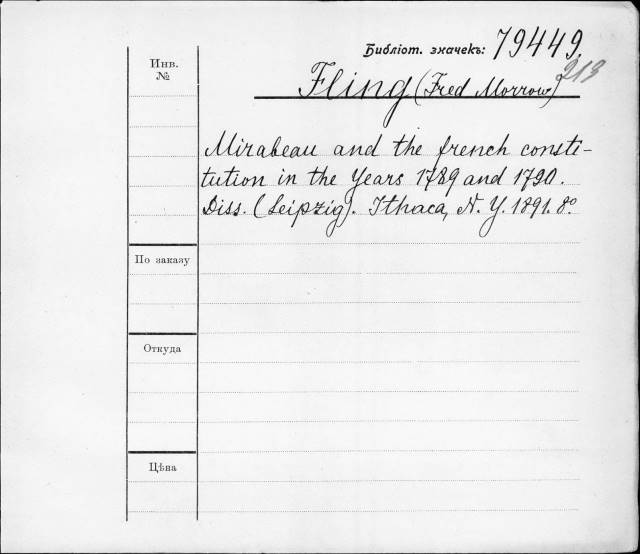 Библіот. значекъ: 79449.
213
Инв.
№
Fling (Fred Morrow)
Mirabeau and the french consti-
tution in the Years 1789 and 1790.
Diss. (Leipzig). Ithaca, N. Y. 1891. 8º.
По заказу
Откуда
Цѣна